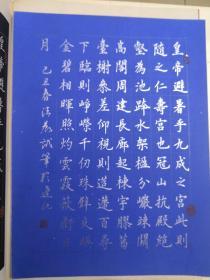 皇帝避暑乎九成之宮此則
隨之仁壽宮也冠山抗殿絕
壑為池跨水架楹分巖竦闕
高閣周建長廊起棟宇膠葛
臺榭參差仰視則迢遞百尋
下臨則崢嶸千仞珠璧交映
金碧相暉照灼雲霞蔽虧日
月 己丑春 誠筆於